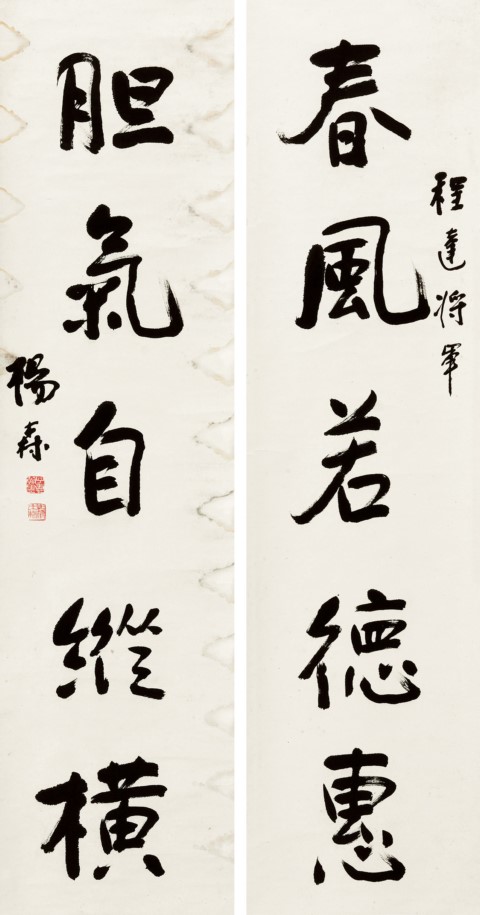 程達將軍
春風若德惠
胆氣自縱橫
楊森